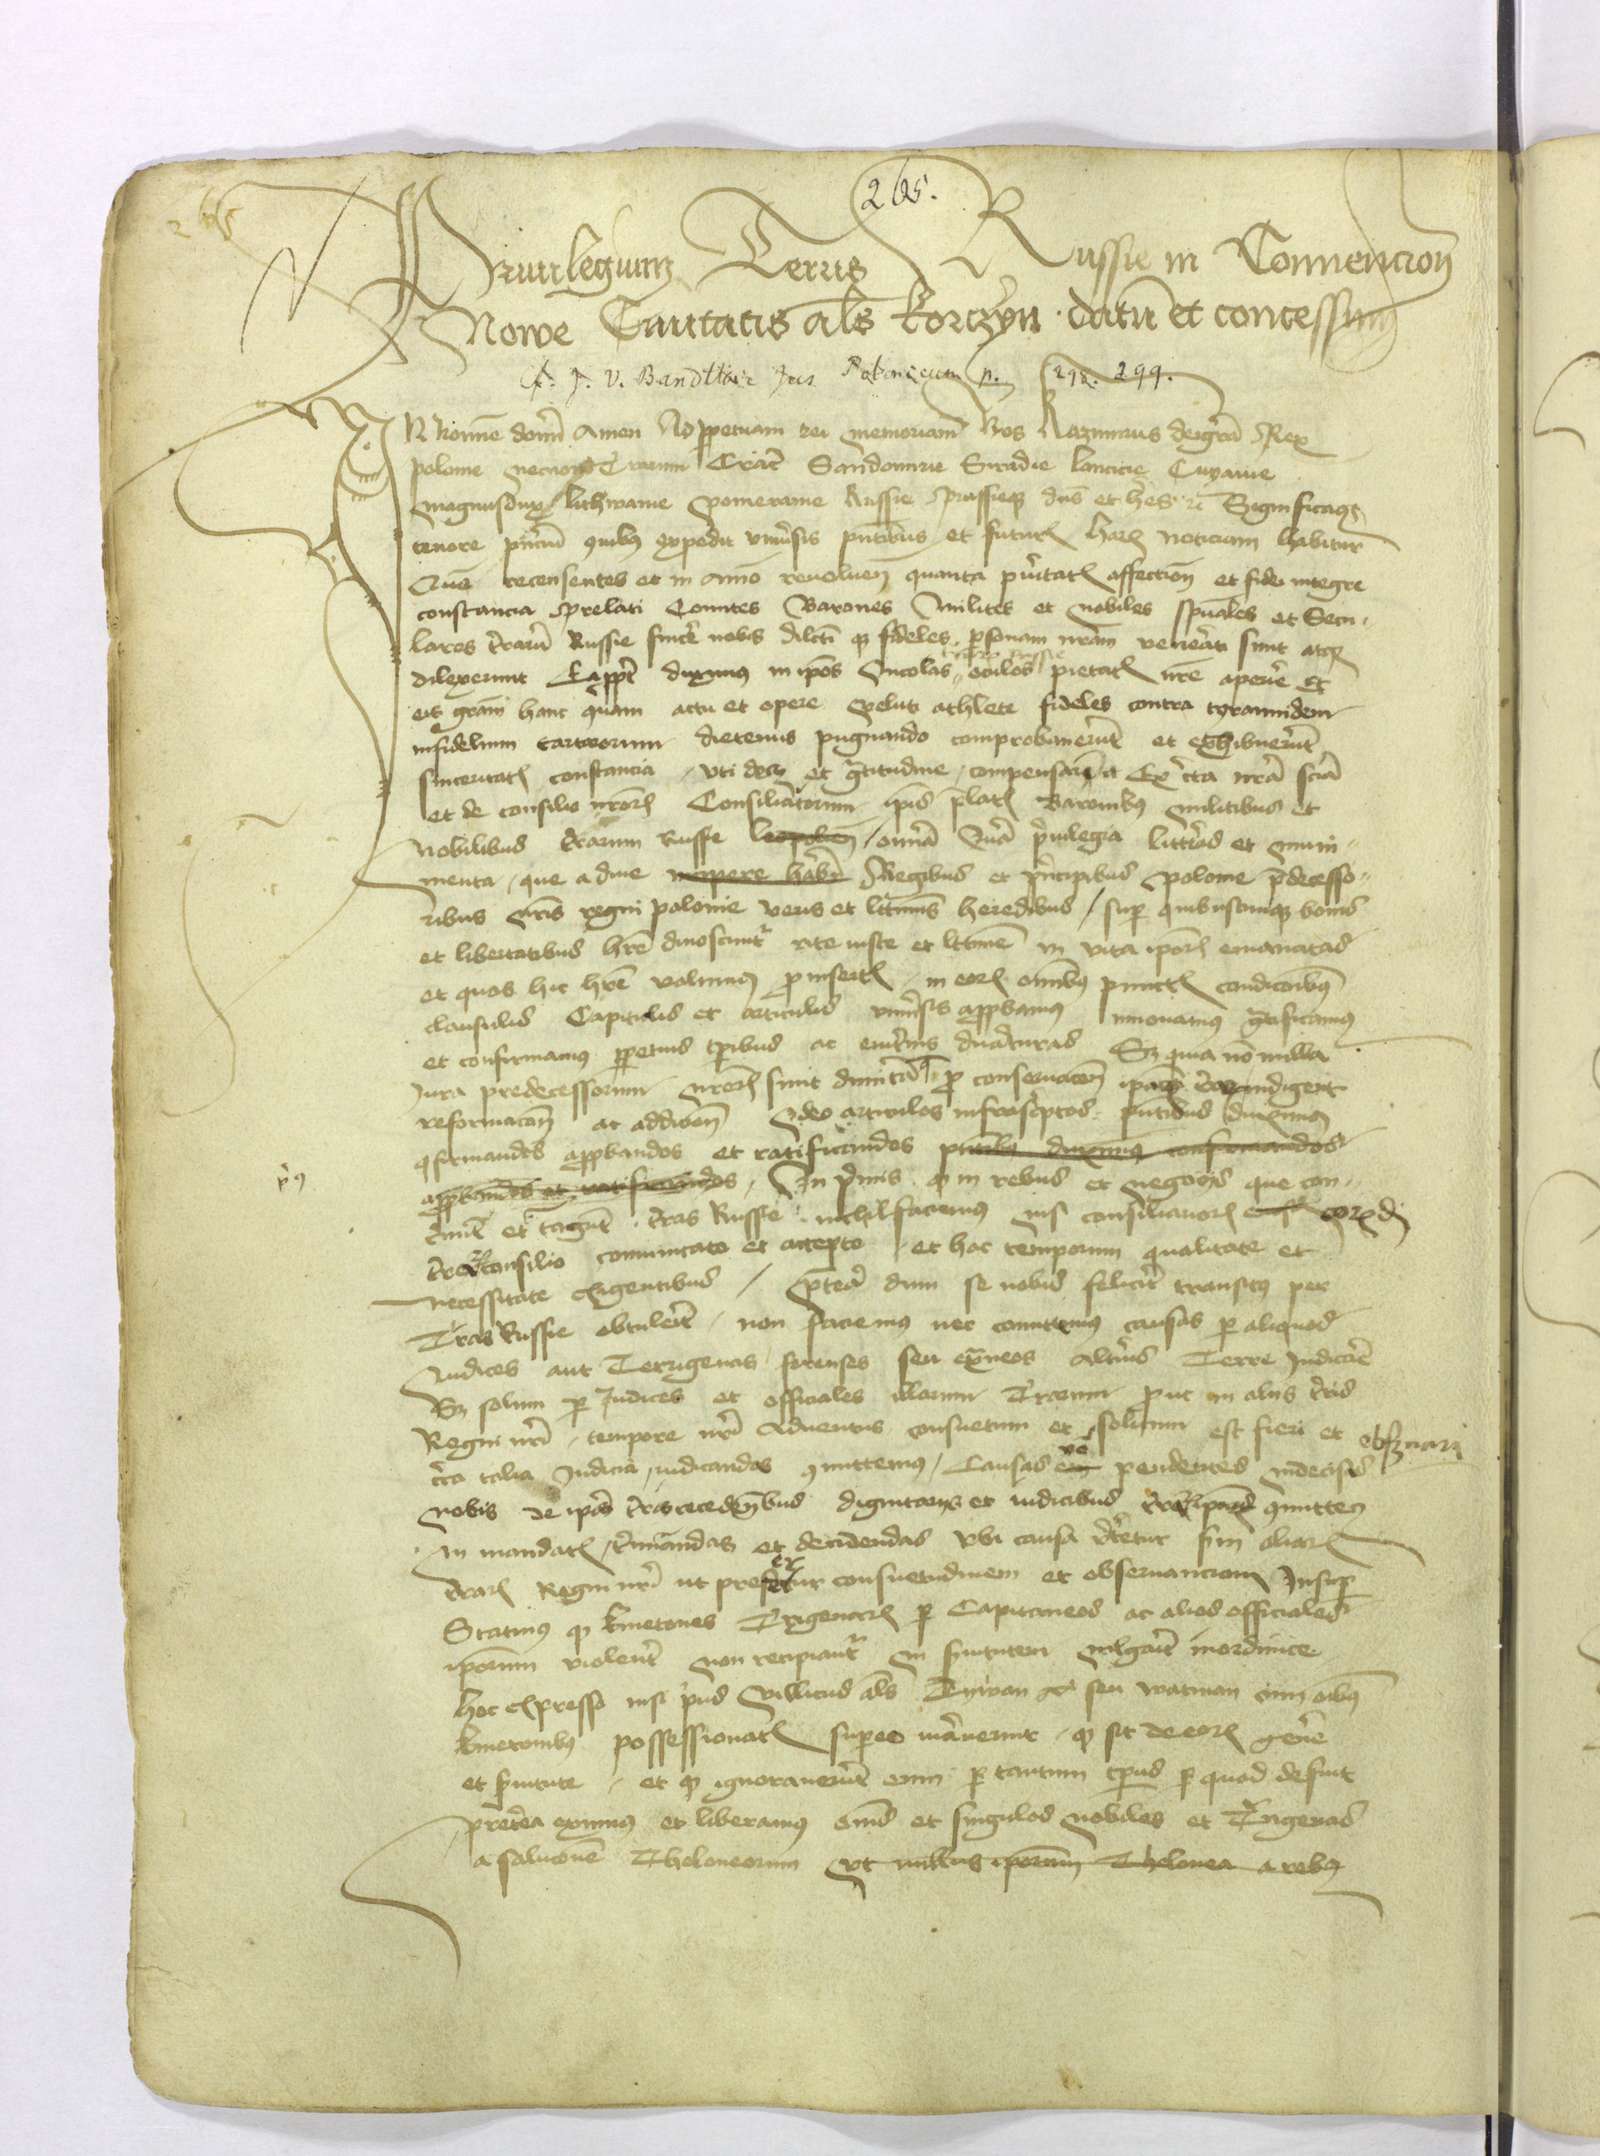 265.
Privilegium Terris Russie in Convencion
Nowe Civitatis als Korczyn datu et concessum
Cf. J. V. Bandtkie Jus Polonicum p. 292. 299.
IN Nomine domi Amen Ad perpetuam rei memoriam Nos Kazimirus dei gra Rex
polonie necnon Terrarum Crac Sandomirie Siradie lancicie Cuyavie
magnus dux lithwanie pomeranie Russie prussieque dns et heres Significamus
tenore pncium quibus expedit universis pntibus et futuris haru noticiam habituris
recensentes et in animo revolven quanta puritatis affection et fidei integre
constancia prelati Comites Barones Milites et nobiles spuales et Secu-
lares terraru Russie sincere nobis dilecti et fideles personam nram venerati sunt atque
dilexerunt duximus in ipos incolas oculos pietatis nre aperire et
eis gram hanc quam actu et opere veluti athlete fideles contra tyrannidem
infidelium tartarorum dietenus pugnando comprobaverut et exhibuerut
sinceritatis constancia uti decet et gratitudine compensare Ex certa nra scia
et de consilio nrorum Consiliatorum ipis prelatis Baronibus militibus et
nobilibus terrarum Russie omnia Jura privilegia litteras et muni-
menta que a dive Regibus et principibus polonie predecesso-
ribus nris regni polonie veris et litimis heredibus super quibuscumque bonis
et libertatibus hre dinoscuntur rite iuste et litime in vita iporum emanatas
et quas hic hre volumus pro insertis in eorum omibus punctis condicionibus
clausulis Capitulis et articulis universis approbamus innovamus gratificamus
et confirmamus perpetuis tpribus ac duraturas Sed quia non nulla
Jura predecessorum nrorum sunt pro conservacione indigent
reformacon ac addicon Ideo articulos infrascriptos pntibus duximus
confirmandos approbandos et ratificandos pntibus duximus confirmandos
approbandos et ratificandos In primis quod in rebus et negociis que con-
et tagunt terras Russie nichil faciemus nisi consiliariorum eorumd
consilio comunicato et accepto et hoc temporum qualitate et
necessitate exigentibus preterea dum se nobis feliciter transitus per
Terras Russie obtulerit non faciemus nec comittemus causas per aliquos
Judices aut Terrigenas forenses seu extraneos alterius Terre Judicare
Sed solum per Judices et officiales illarum Terrarum prout in aliis terris
Regni nri tempore nri Adventus consuetum et solitum est fieri et observari
talia Judicia iudicandas comittemus Causas vo pendentes indecisas
nobis de ipis terris recedentibus dignitariis et iudicibus comittem
In mandatis terminandas et decidendas ubi causa verteretur aliarum
terrarum Regni nri ut prefertur consuetudinem et observanciam Insup
Statuimus quod kmetones Terrigenarum per Capitaneos ac alios officiales
iporum violenter non recipiantur in servitutem inordinate
hoc expresso nisi prius villicus als Tywon seu watman cum oibus
kmetonibus possessionatis super eo iuraverint quod sit de eorum genere
et servitute et quod ignoraverunt eum per tantum tpus per quod defuit
preterea eximimus et liberamus omnes et singulos nobiles et Terrigenas
a solucione Theloneorum ut nullus iporum Thelonea a rebus